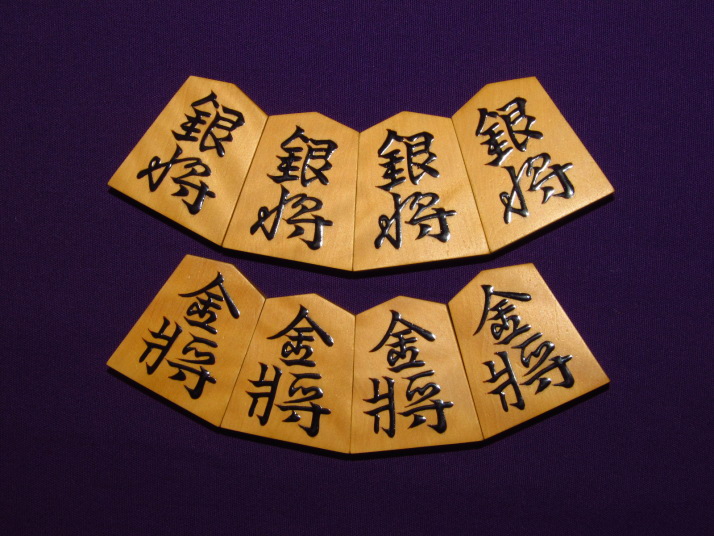 銀将
銀将
銀将
銀将
金將
金將
金將
金將